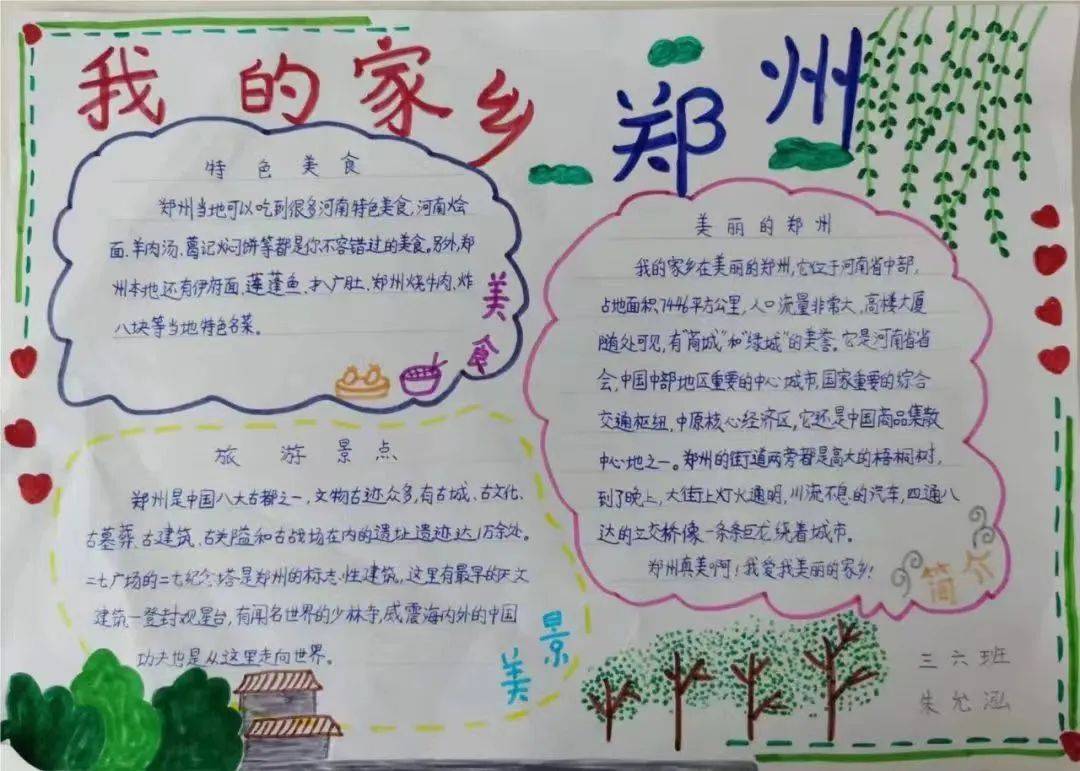 我的家乡
郑州
特色美食
郑州当地可以吃到很多河南特色美食,河南烩
面、羊肉汤、葛记焖饼等都是你不容错过的美食。另外,郑
州本地还有伊府面、莲蓬鱼、扒广肚、郑州烧牛肉、炸
八块等当地特色名菜。
美食
旅游景点
郑州是中国八大古都之一,文物古迹众多,有古城、古文化、
古墓葬、古建筑、古关隘和古战场在内的遗址遗迹达1万余处。
二七广场的二七纪念塔是郑州的标志性建筑,这里有最早的天文
建筑一登封观星台,有闻名世界的少林寺,威震海内外的中国
功夫也是从这里走向世界。
美景
美丽的郑州
我的家乡在美丽的郑州,它位于河南省中部,
占地面积7446平方公里,人口流量非常大,高楼大厦
随处可见,有"商城"和"绿城"的美誉。它是河南省省
会,中国中部地区重要的中心城市,国家重要的综合
交通枢纽,中原核心经济区,它还是中国商品集散
中心地之一。郑州的街道两旁都是高大的梧桐树,
到了晚上,大街上灯火通明,川流不息的汽车,四通八
达的立交桥像一条条巨龙绕着城市。
郑州真美啊!我爱我美丽的家乡!
简介
三六班
朱允涵